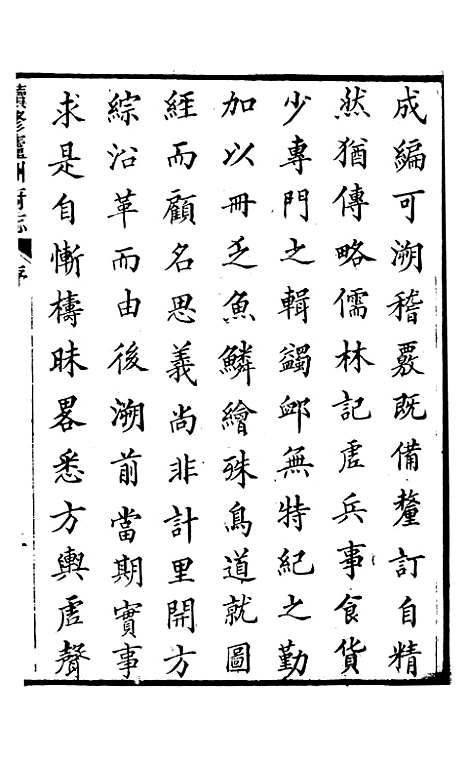 成編可溯稽覈既備釐訂自精
然猶傳略儒林記虛兵事食貨
少專門之輯蠲卹無特紀之勤
加以冊乏魚鱗繪殊鳥道就圖
經而顧名思義尚非計里開方
綜沿革而由後溯前當期實事
求是自慚檮昧畧悉方輿虛聲
續修廬州府志 序